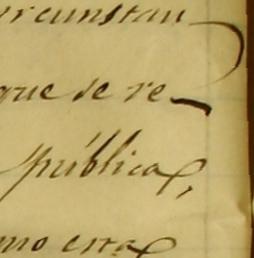 ircunstan
que se re
pública,
mo esta